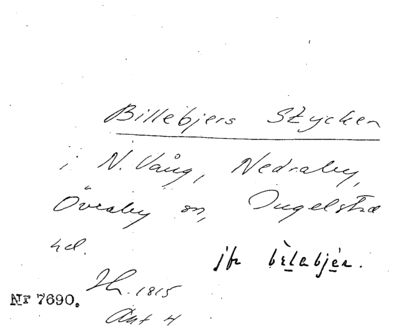 Billebjers Stycken
i N. Vång, Nedraby,
Övraby sn, Ingelstad
hd.
jfr bèlabjèr.
Nr 7690.
1815
Akt 4